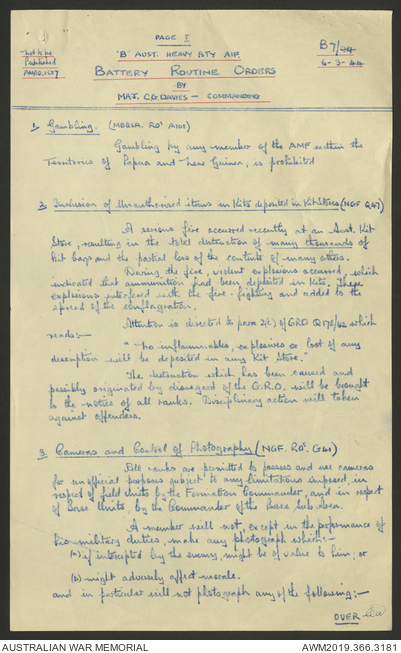 PAGE I
'B' AUST. HEAVY BTY AIF.
B7/44
6-3-44
Not to be
Published
BATTERY ROUTINE ORDERS
BY
MAJ. C.G. DAVIES - COMMANDING
1. Gambling. (MDBSA. RO' A101)
Gambling by any member of the AMF within the
Territories of Papua and New Guinea, is prohibited
2. Inclusion of Unauthorised items in Kits deposited in Kit Stores (NGF Q47)
A serious fire occurred recently at an Aust. Kit
Store, resulting in the total destruction of many thousands of
kit bags and the partial loss of the contents of many others.
During the fire, violent explosions occurred, which
indicated that ammunition had been deposited in kits. These
explosions interfered with the fire-fighting and added to the
spread of the conflagration.
Attention is directed to para 2(c) of GRO Q178/42 which
reads:-
" No inflammables, explosives or loot of any
description will be deposited in any Kit Store."
The destruction which has been caused and
possibly originated by disregard of the G.R.O. will be brought
to the notice of all ranks. Disciplinary action will taken
against offenders.
3. Cameras and Control of Photography (NGF. RO'. G61)
All ranks are permitted to possess and use cameras
for unofficial purposes subject to any limitations imposed, in
respect of field units by the Formation Commander, and in respect
of Base Units, by the Commander of the Base Sub Area.
A member will not, except in the performance of
his military duties, make any photograph which:-
(a) if intercepted by the enemy, might be of value to him; or
(b) might adversely affect morale.
and in particular will not photograph any of the following:-
OVER
AUSTRALIAN WAR MEMORIAL
AWM2019.366.3181